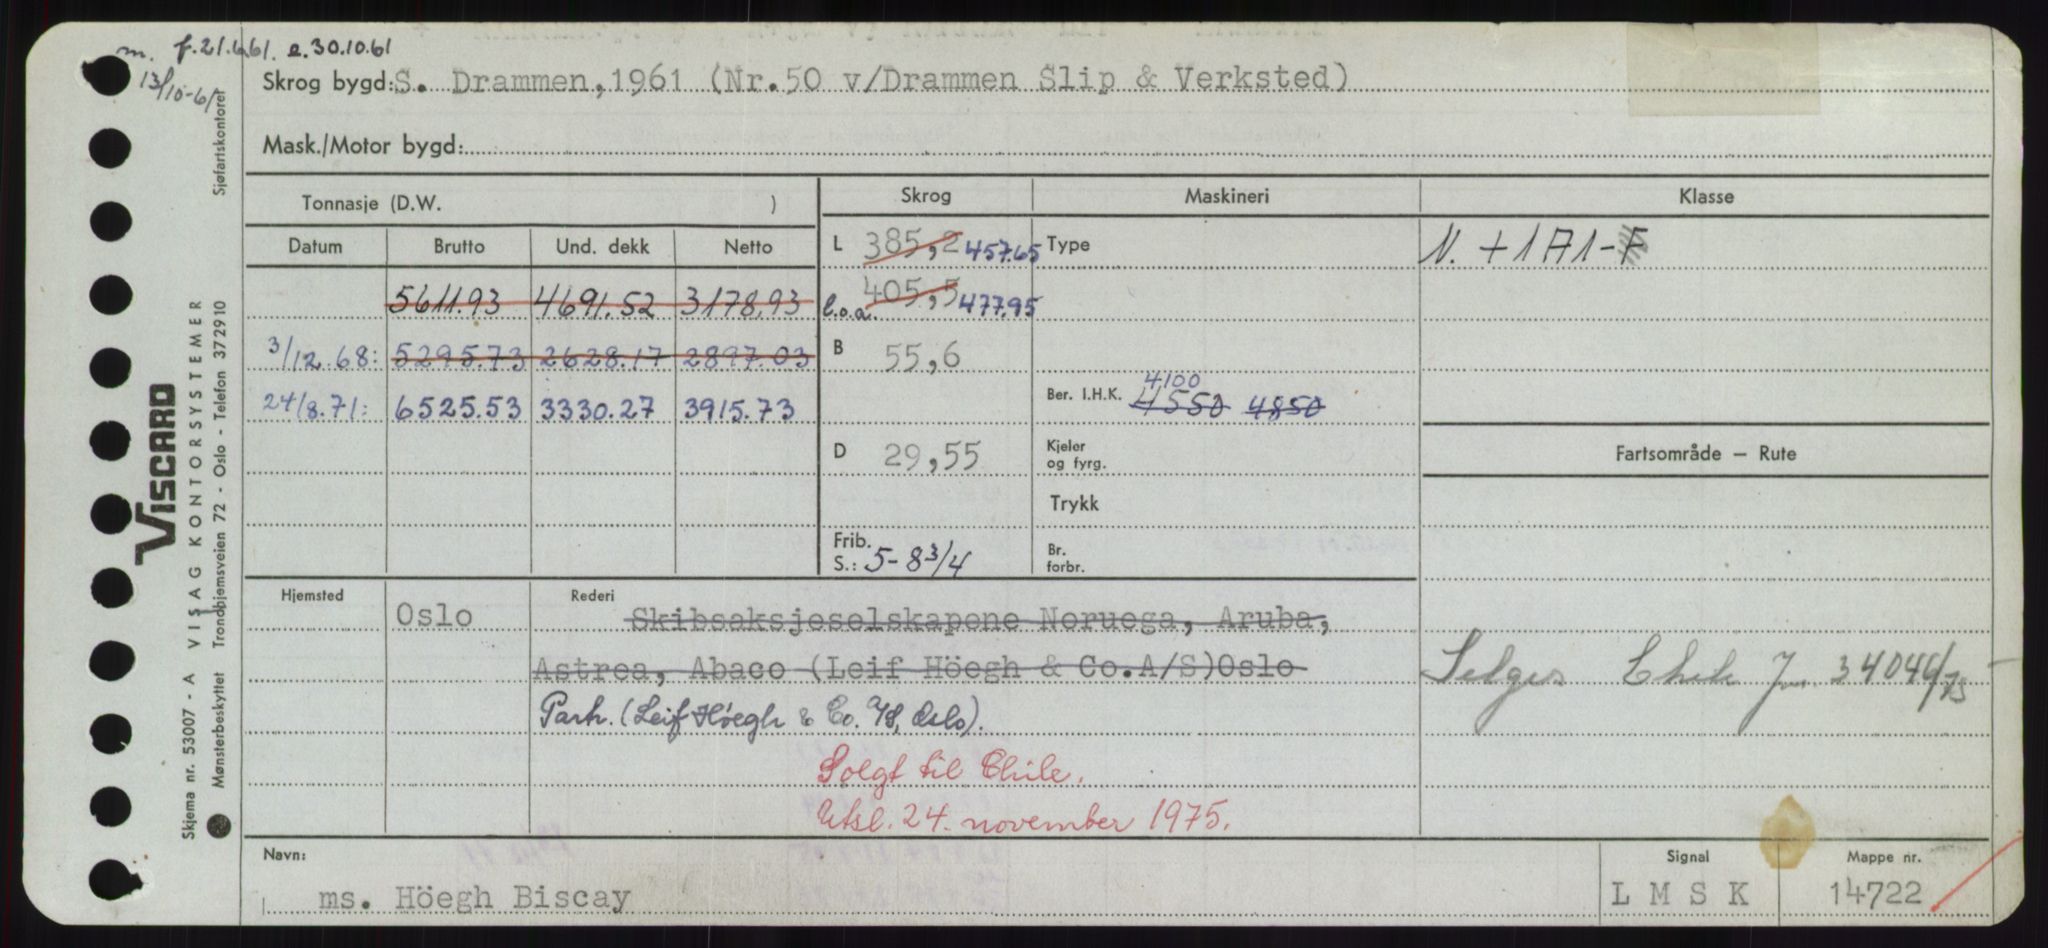 m. f.21.6.61. e.30.10.61
13/10-61
Skrog bygd: S. Drammen,1961 (Nr.50 v/Drammen Slip & Verksted)
Mask./Motor bygd:
Tonnasje (D.W. )
Skrog
Maskineri
Klasse
Datum
Brutto
Und. dekk
Netto
L 385,2 457.65
Type
N. +1A1-F
5611.93 4691.52 3178.93
l.o.a. 405,5 477.95
3/12.68: 5295.73 2628.17 2897.03
B 55,6
24/8.71: 6525.53 3330.27 3915.73
Ber. I.H.K. 4100 4550 4850
D 29,55
Kjeler
og fyrg.
Fartsområde — Rute
Trykk
Frib.
S.: 5-8 3/4
Br.
forbr.
Hjemsted
Oslo
Rederi
Skibsaksjeselskapene Noruega, Aruba,
Astrea, Abaco (Leif Höegh & Co.A/S)Oslo
Partr. (Leif Höegh & Co. A/S, Oslo).
Solgt til Chile.
Utsl. 24. november 1975.
Selges Chile Jnr. 34046/75
Navn:
ms. Höegh Biscay
Signal
L M S K
Mappe nr.
14722
VISCARD
Skjema nr. 53007 - A VISAG KONTORSYSTEMER
Mønsterbeskyttet Trondhjemsveien 72 - Oslo - Telefon 372910
Sjøfartskontoret